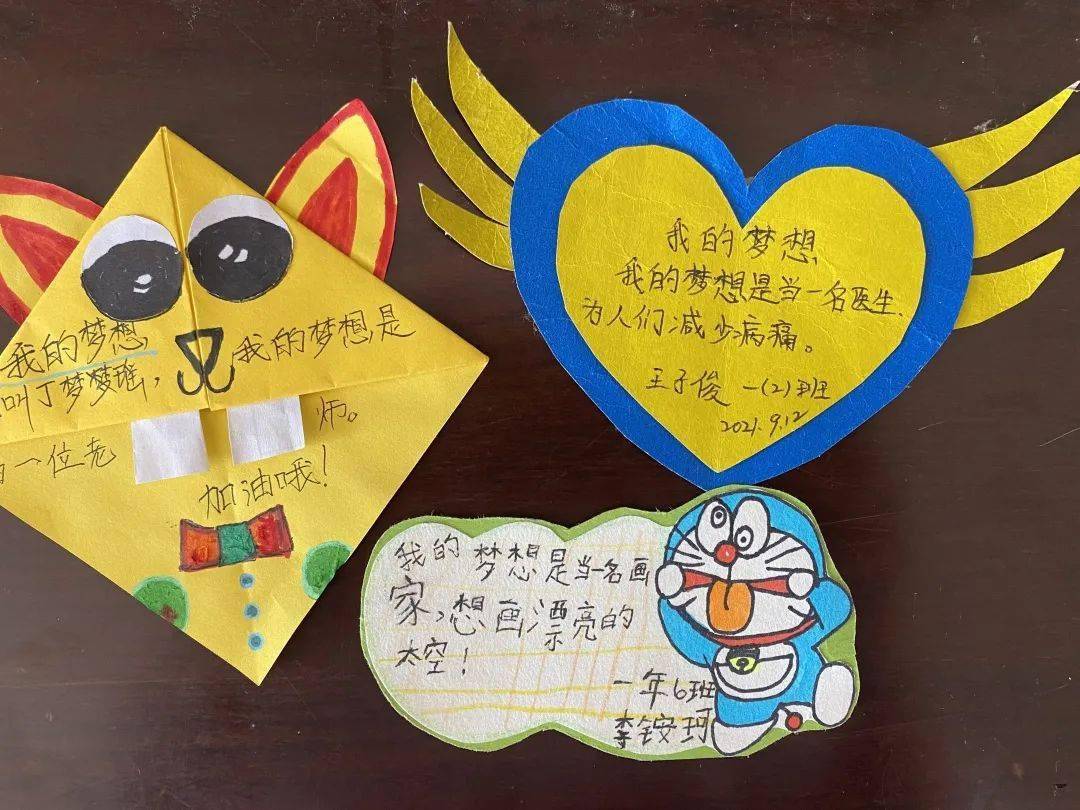 我的梦想
叫丁梦瑶，我的梦想是
一位老师。
加油哦！
我的梦想
我的梦想是当一名医生.
为人们减少病痛。
王子俊 一(2)班
2021.9.12
我的梦想是当一名画
家,想画漂亮的
太空!
一年6班
李铵珂